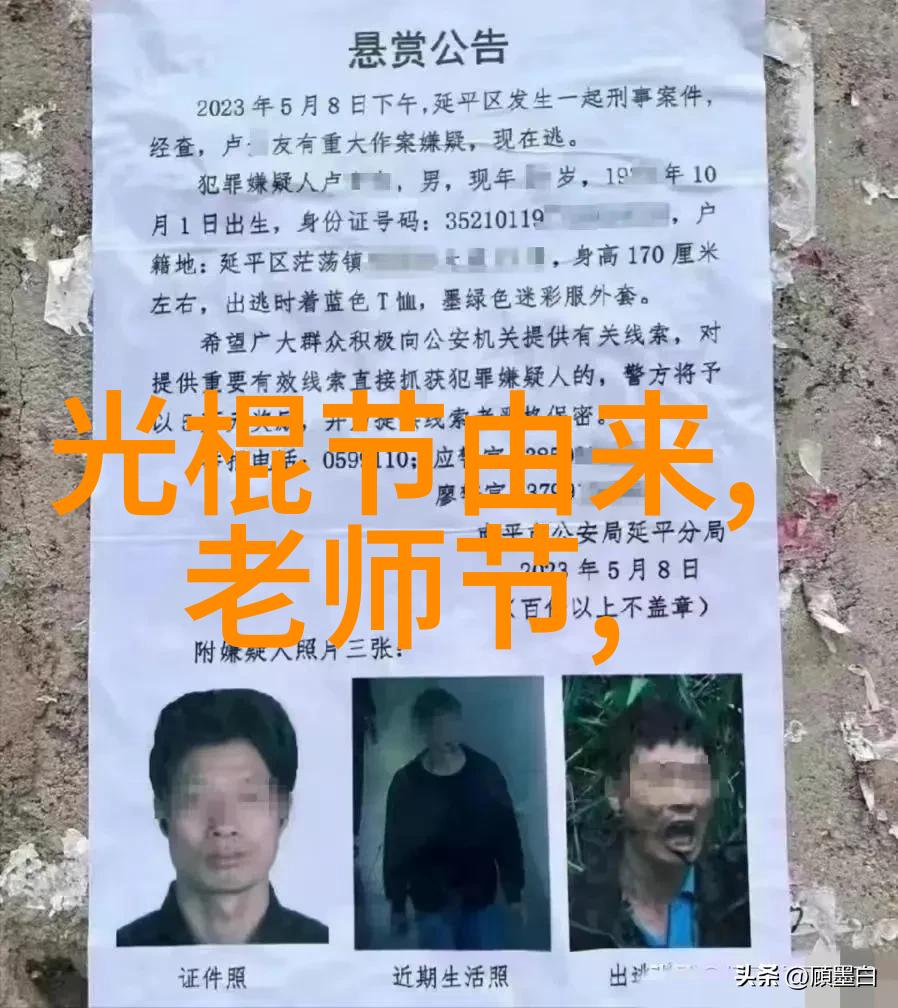 悬赏公告
2023年5月8日下午，延平区发生一起刑事案件，
经查，卢 友有重大作案嫌疑，现在逃。
犯罪嫌疑人卢 ，男，现年 岁，19 年10
月1日出生，身份证号码：35210119 ，户
籍地：延平区茫荡镇 ，身高170厘米
左右，出逃时着蓝色T恤，墨绿色迷彩服外套。
希望广大群众积极向公安机关提供有关线索，对
提供重要有效线索直接抓获犯罪嫌疑人的，警方将予
以
光棍节由来,
电话：0599110；应
廖
公安局延平分局
老师节,
年5月8日
以上不盖章）
附嫌疑人照片三张：
证件照
近期生活照
出逃
头条 @顾墨白